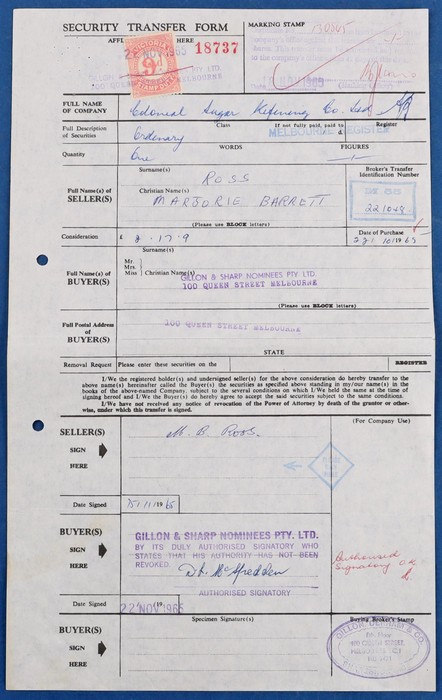 SECURITY TRANSFER FORM
MARKING STAMP 130865
AFFIX HERE
18737
VICTORIA
9d
STAMP DUTY
22 NOV 1965
PTY. LTD.
MELBOURNE
NOV 1965
FULL NAME OF COMPANY Colonial Sugar Refining Co. Ltd
Full Description of Securities Ordinary
Class
If not fully paid, paid to
d.
Register
MELBOURNE REGISTER
Quantity One
WORDS
FIGURES
—1—
Full Name(s) of SELLER(S)
Surname(s)
ROSS
Christian Name(s)
MARJORIE BARRETT
(Please use BLOCK letters)
Broker's Transfer Identification Number
221048
Consideration £ 2.17.9
Date of Purchase
22/10/1965
Full Name(s) of BUYER(S)
Surname(s)
Mr.
Mrs.
Miss
Christian Name(s)
GILLON & SHARP NOMINEES PTY LTD.
100 QUEEN STREET MELBOURNE
(Please use BLOCK letters)
Full Postal Address of BUYER(S)
100 QUEEN STREET MELBOURNE
STATE
Removal Request
Please enter these securities on the
REGISTER
I/We the registered holder(s) and undersigned seller(s) for the above consideration do hereby transfer to the
above name(s) hereinafter called the Buyer(s) the securities as specified above standing in my/our name(s) in the
books of the above-named Company, subject to the several conditions on which I/We held the same at the time of
signing hereof and I/We the Buyer(s) do hereby agree to accept the said securities subject to the same conditions.
I/We have not received any notice of revocation of the Power of Attorney by death of the grantor or other-
wise, under which this transfer is signed.
SELLER(S)
SIGN
HERE
M. B. Ross.
(For Company Use)
Date Signed 15/11/1965
BUYER(S)
SIGN
HERE
GILLON & SHARP NOMINEES PTY. LTD.
BY ITS DULY AUTHORISED SIGNATORY WHO
STATES THAT HIS AUTHORITY HAS NOT BEEN
REVOKED.
AUTHORISED SIGNATORY
Authorised
Signatory OK
Date Signed 22 NOV 1965
BUYER(S)
SIGN
HERE
Specimen Signature(s)
Buying Broker's Stamp